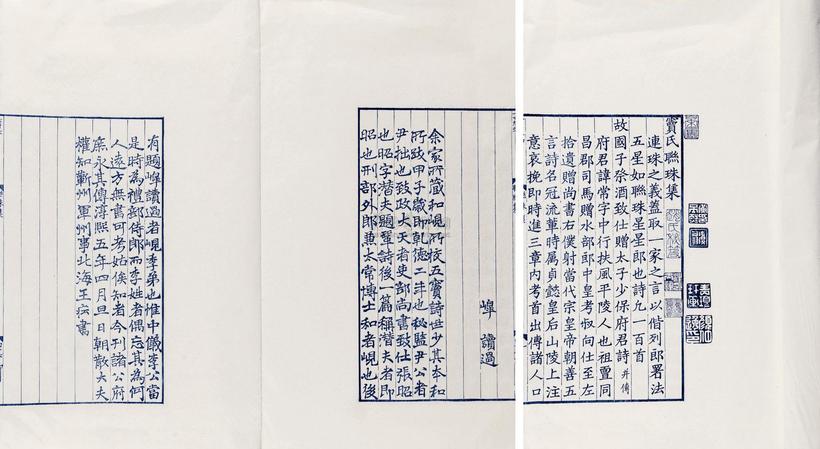 竇氏聯珠集
連珠之義蓋取一家之言以偕列郎署法
五星如聯珠星星郎也詩凡一百首
故國子祭酒致仕贈太子少保府君詩并傳
府君諱常字中行扶風平陵人也祖亶同
昌郡司馬贈水部郎中皇考叔向仕至左
拾遺贈尚書右僕射當代宗皇帝朝善五
言詩名冠流輩時屬貞懿皇后山陵上注
意哀挽即時進三章內考首出傳諸人口
㟧 讀過
余家所藏和峴所校五竇詩世少其本和
所跋甲子歲即乾德二年也秘監尹公者
尹拙也致政大天者吏部尚書致仕張昭
也昭字潛夫題鞏詩後一篇稱潛夫者即
昭也刑部外郎兼太常博士和者峴也後
有題㟧讀過者峴季弟也惟中儀李公當
是時為禮部侍郎而李姓者偶忘其為何
人遠方無書可考姑俟知者今刊諸公府
庶永其傳淳熙五年四月旦日朝散大夫
權知蘄州軍州事北海王崧書